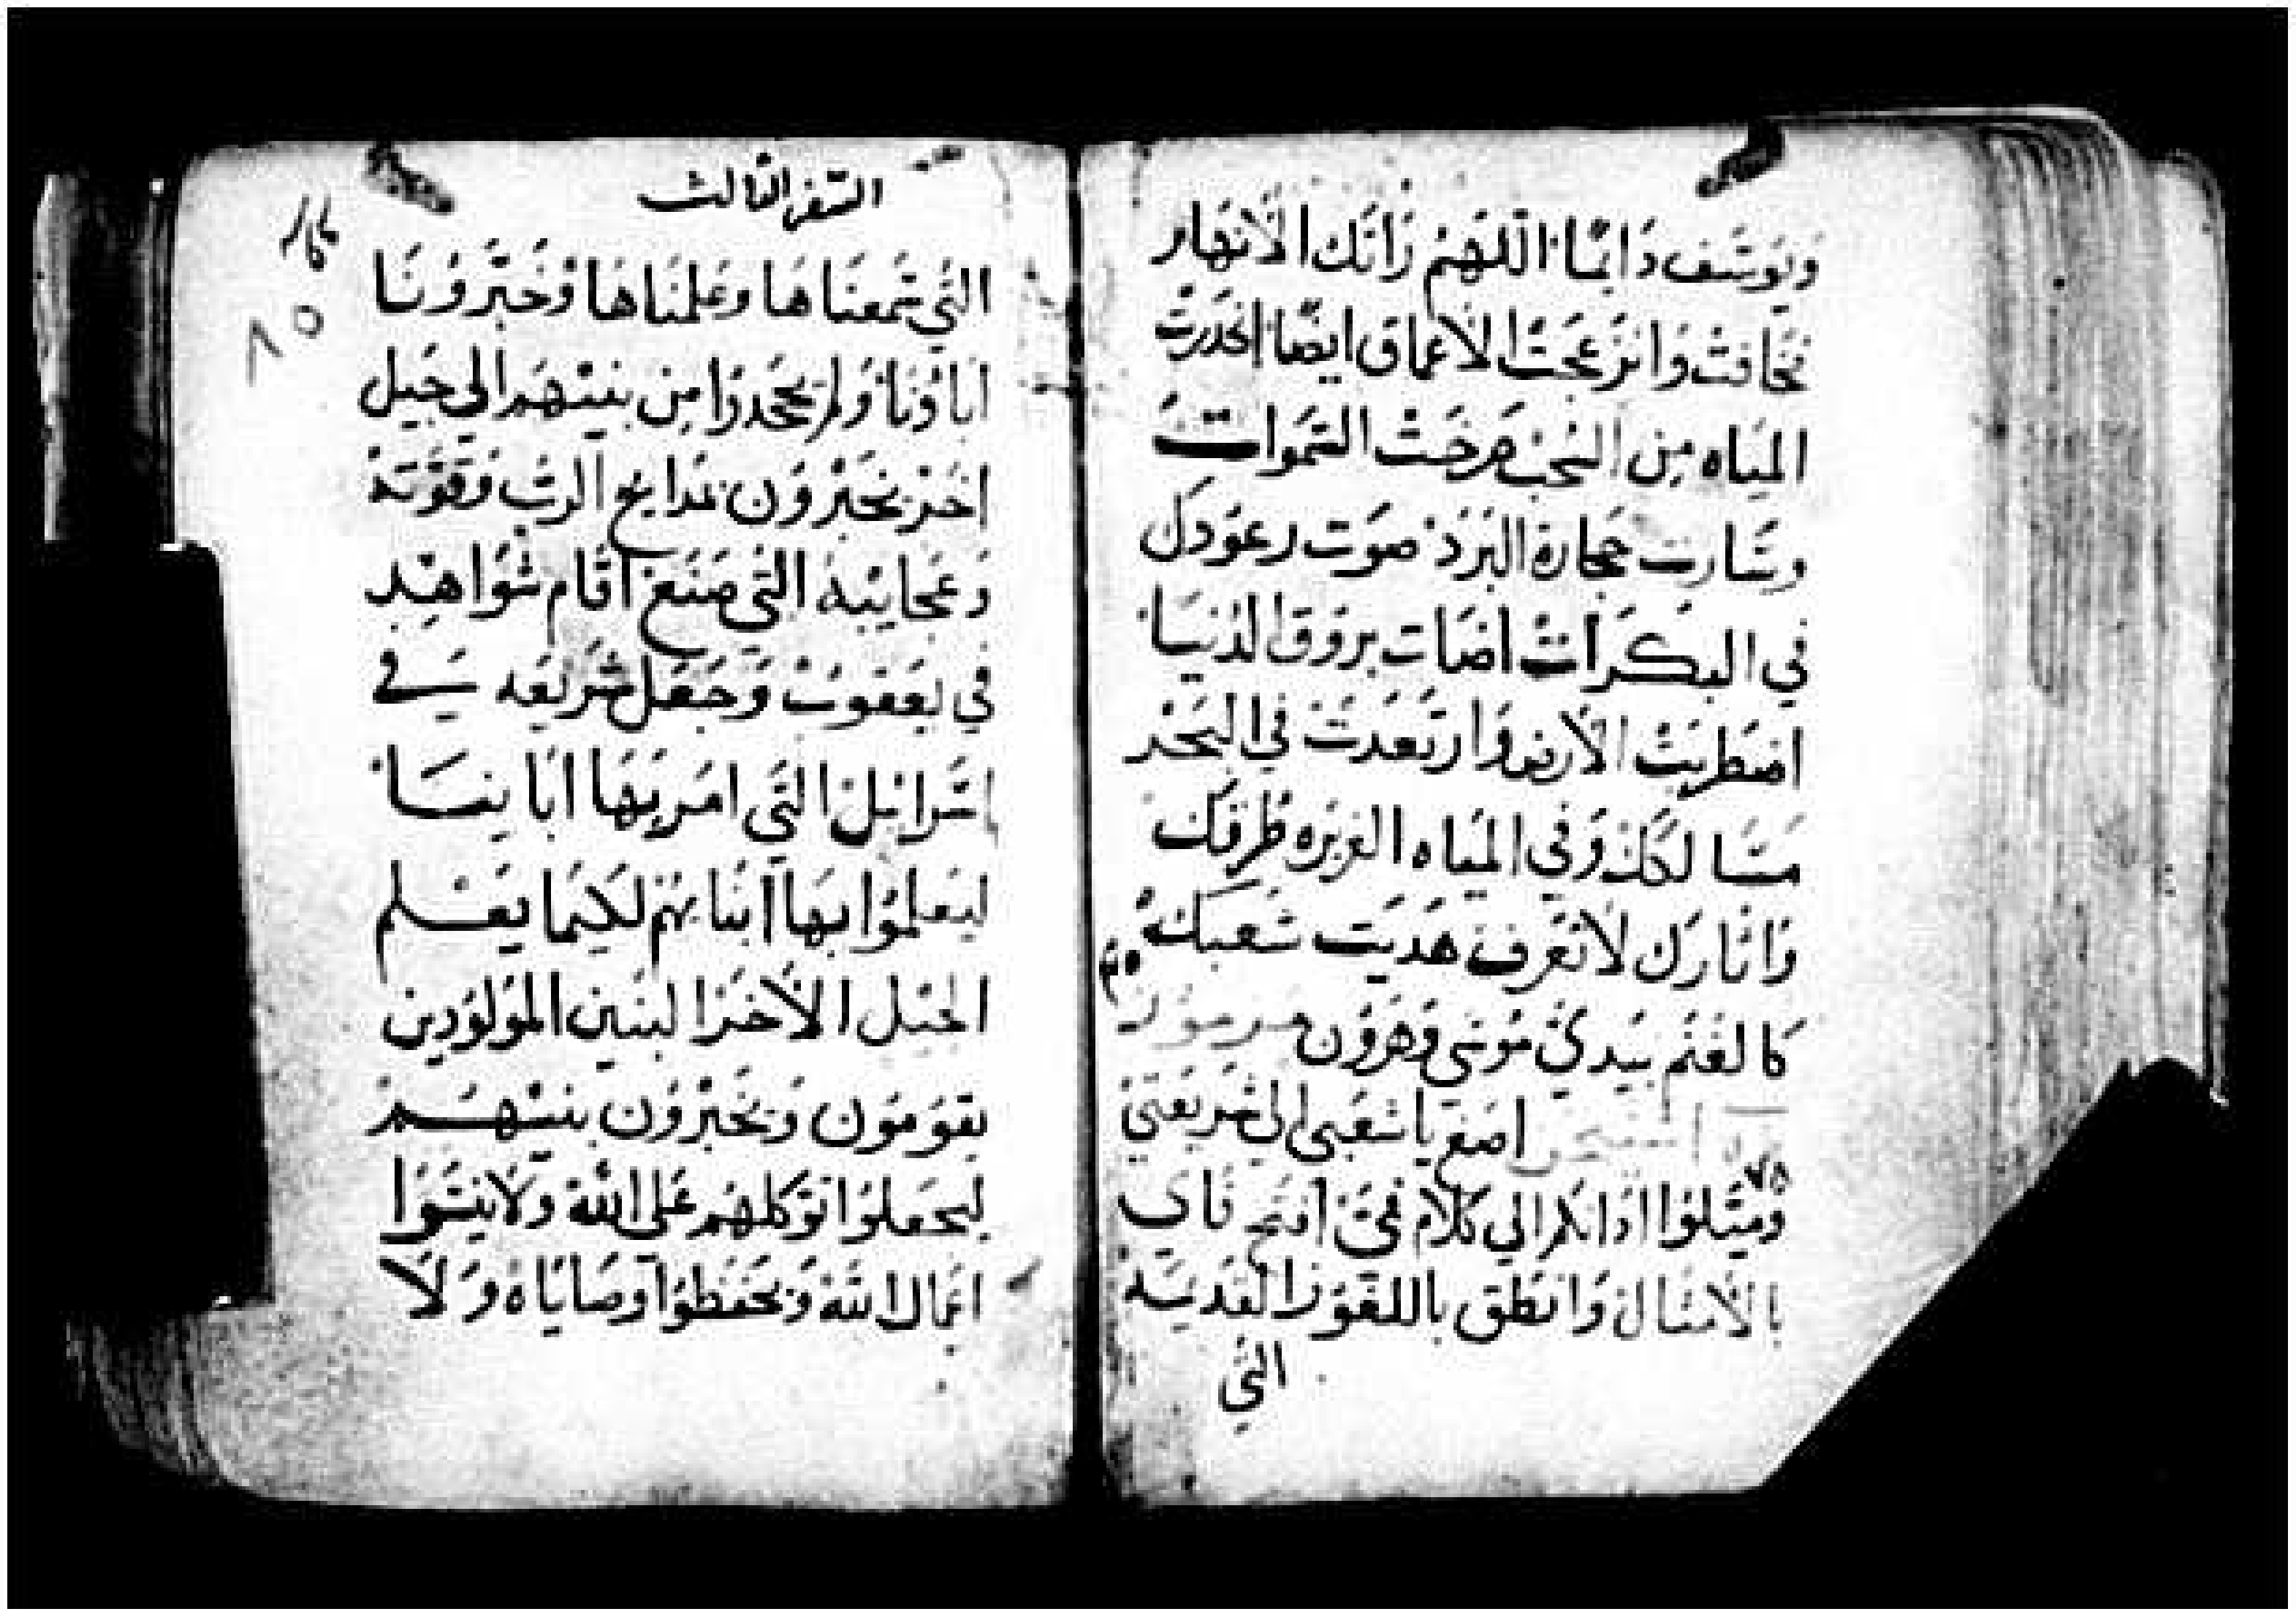 ويوسف دايمًا اللهم رَاتك الأنهار
فخافتْ وَانزعجتْ الأعماق ايضًا انحدرت
المياه من السُحب صَرخَتْ السَموات
وسَارت حجَارة البَرَد صَوت رعودك
في البكرَات اضات بروق الدنيَا
اضطربَتْ الأرض وَارتعَدَت في البَحْر
مسَالكك وَفي الميَاه الغزيره طُرقك
وَاثارك لا تعرف هَديَت شَعبَك
كالغنَم بيَدي مُوسَى وَهرون مزمور
اصغ يا شعبي إلى شريعَتي
٧٧
وَميّلوُا اذانكم الي كلام فمي افتح فاي
بالأمثال وَانطق باللغوز القديمَة
التي
السفر الثالث
التي سمعنَاهَا وعلمنَاها وَخبّروُنَا
اباوُنَا وَلم يجحدوَا من بنيهم الي جيل
اخر يخبروُن بمدايح الرب وَقوّته
وَعجايبه التي صَنَع اقام شوَاهِد
في يعقوب وَجعَل شريعَه في
إسرايل التي امَر بهَا ابَاينَا
ليعلموُا بهَا ابنَايهُم لكيمَا يعْلم
الجيل الأخر البنين المَولوُدين
يقوموُن وَيخبروُن بنيهم
ليجعلوُا توكلهُم عَلى الله وَلا ينسَوا
اعمال الله وَيحفظوُا وصَايَاهُ وَلا